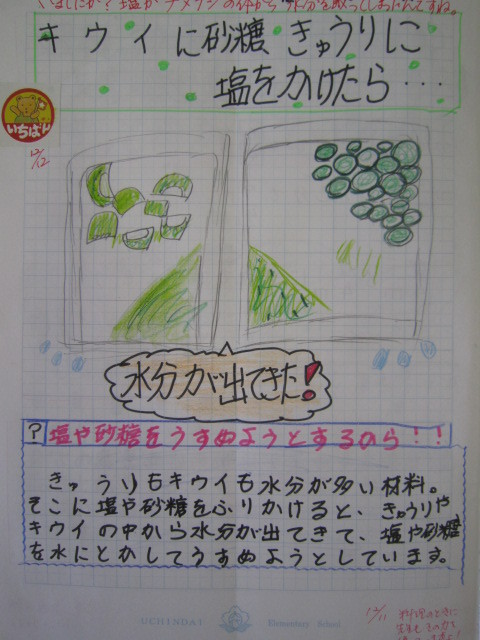 塩がナメクジの体から水分を取ってしまったんですね。
キウイに砂糖 きゅうりに
塩をかけたら…
いちばん
12/12
水分が出てきた!
? 塩や砂糖をうすめようとするから!!
きゅうりもキウイも水分が多い材料。
そこに塩や砂糖をふりかけると、きゅうりや
キウイの中から水分が出てきて、塩や砂糖
を水にとかしてうすめようとしています。
UCHINDAI Elementary School
12/11
料理のときに